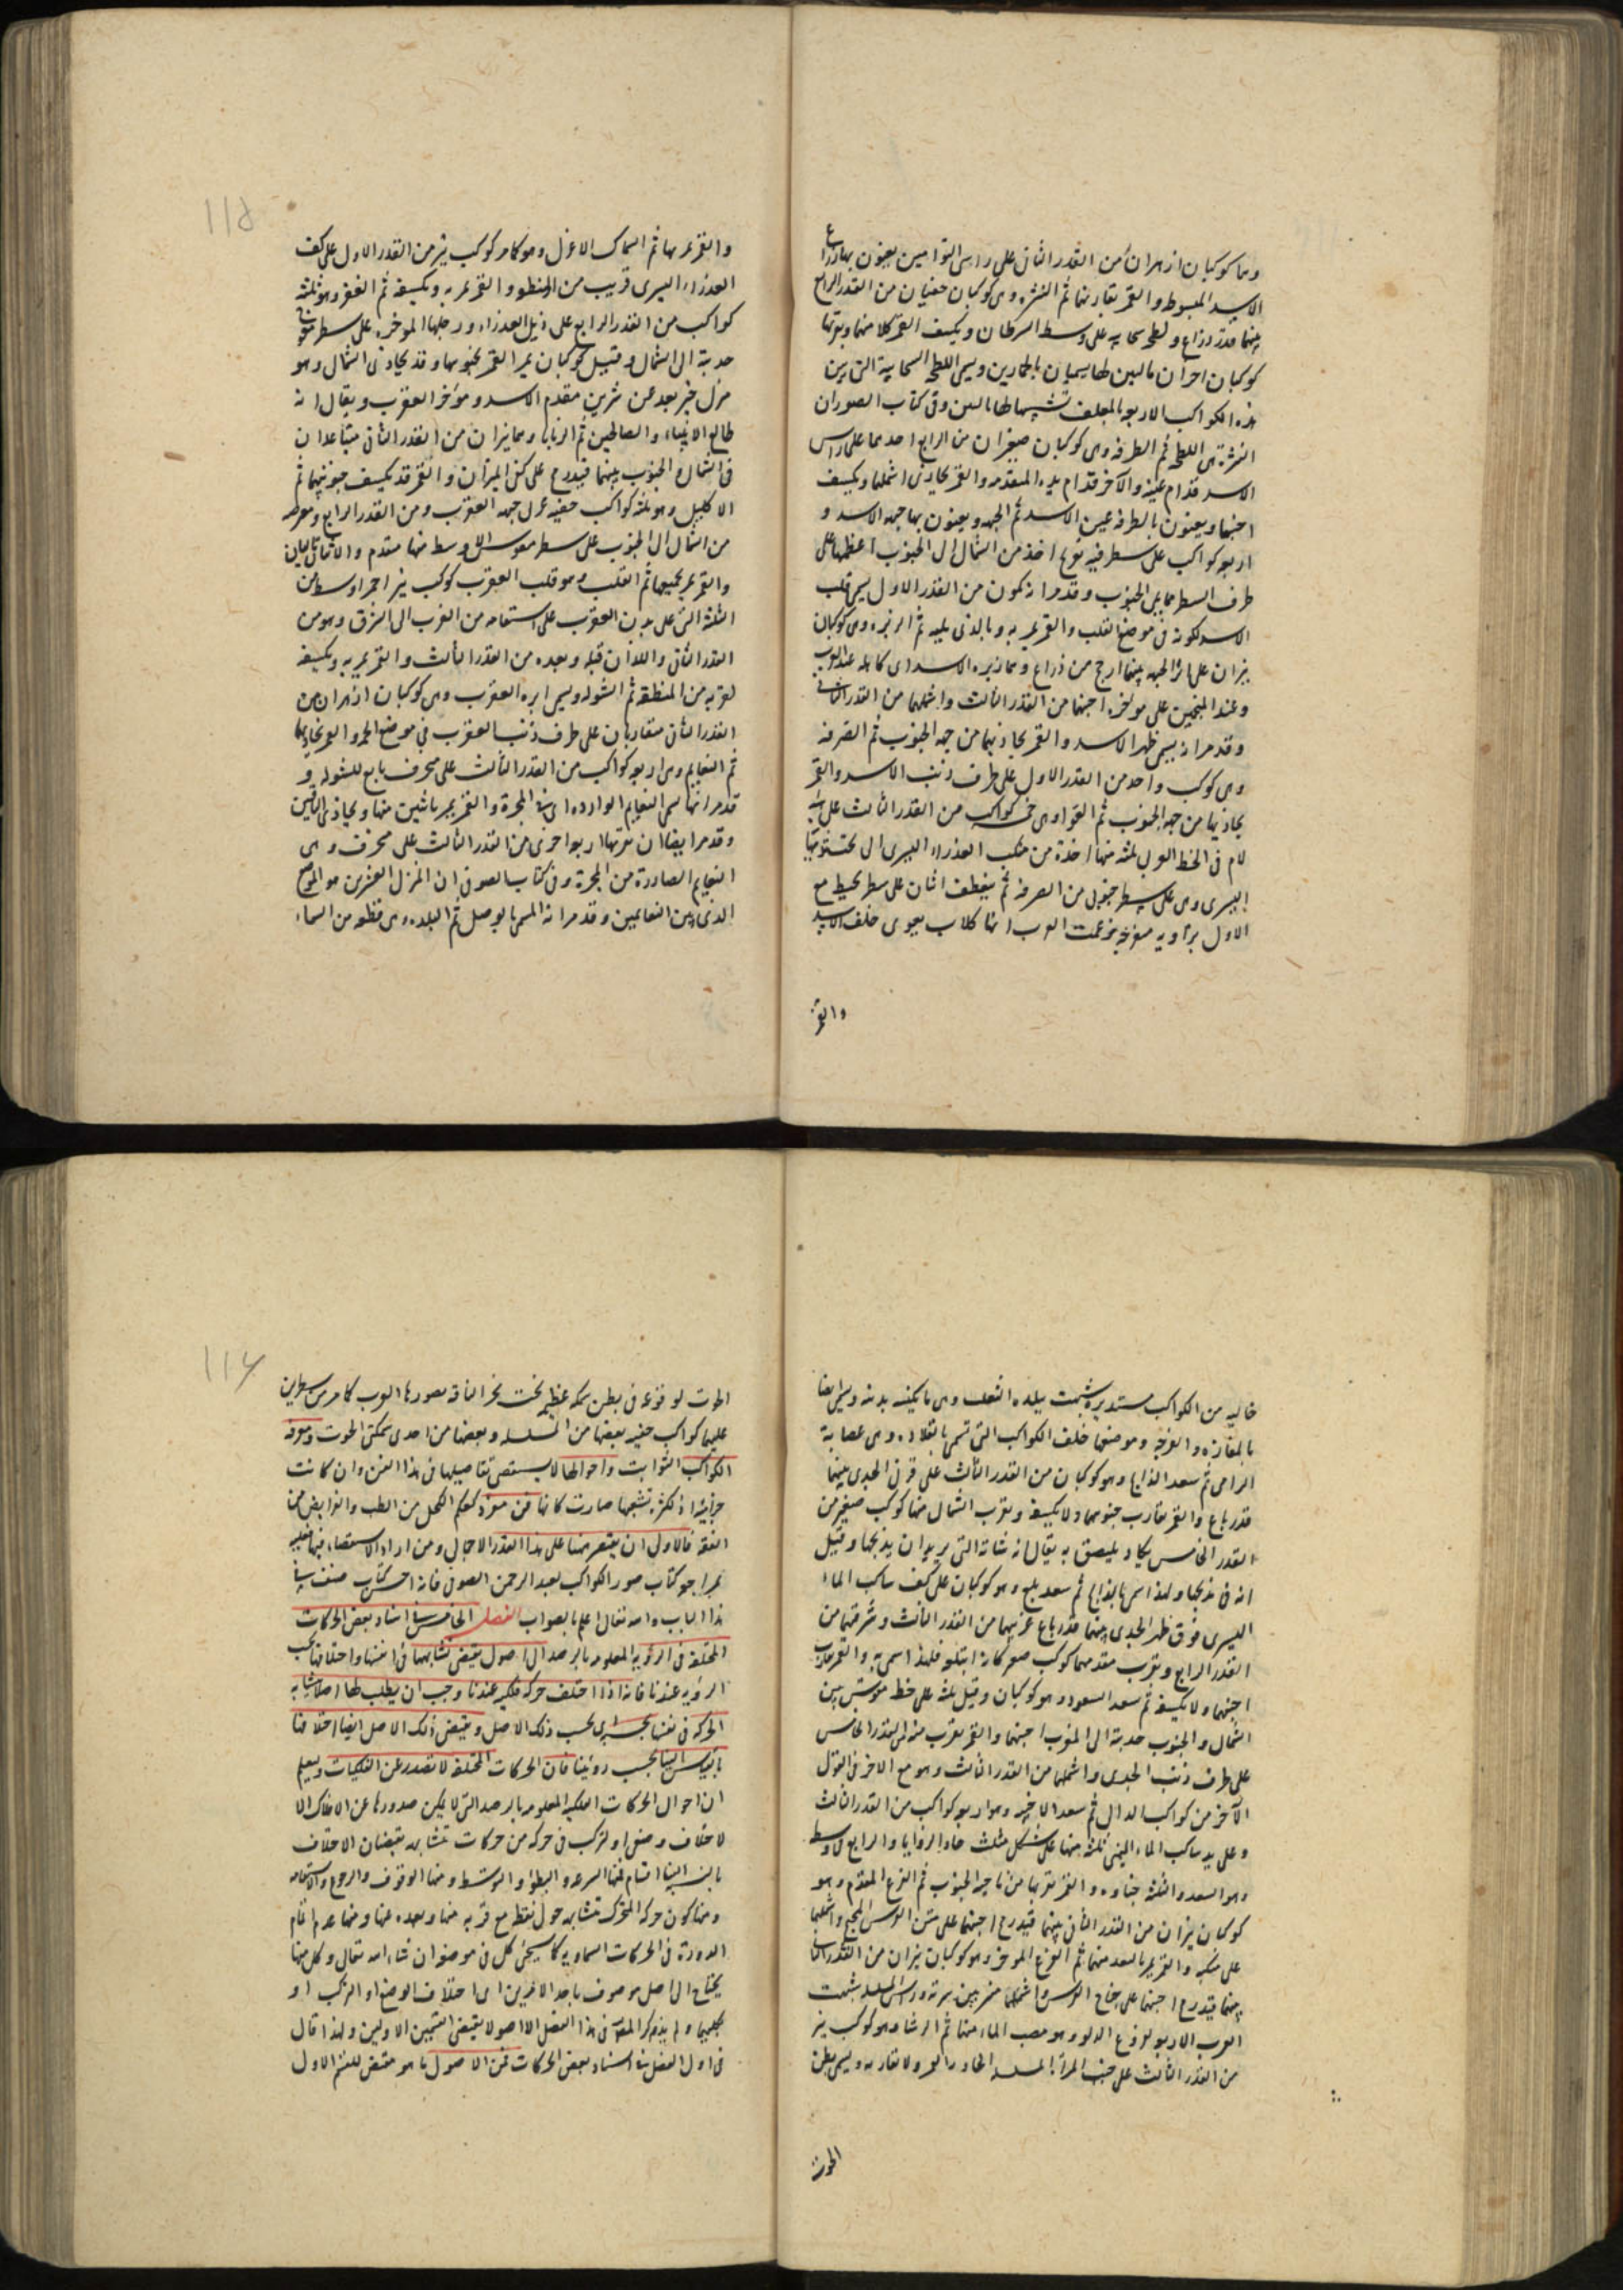 وهما كوكبان ازهران من القدر الثانى على راسى التوامين يعنون بها ذراع
الاسد المبسوطه والقمر يقارنهما ثم النثره وهى كوكبان خفيان من القدر الرابع
بينهما قدر ذراع ولطخه سحابيه على وسط السرطان ويكسف القمر كلا منهما وبقربها
كوكبان اخران يسميان بالحمارين ويسمى اللطخه السحابية التى بين
هذه الكواكب الاربعه بالمعلف تشبيها لها وفى كتاب الصور ان
النثرة هى اللطخه ثم الطرفه وهى كوكبان صغيران من الرابع احدهما على راس
الاسد قدام عينه والآخر قدام يده المتقدمه والقمر يحاذى اشملهما ويكسف
اجنبهما ويعنون بالطرفه عين الاسد ثم الجبهه ويعنون بها جبهه الاسد و
اربعه كواكب على سطر فيه تعوج اخذ من الشمال الى الجنوب اعظمها على
طرف السطر مما يلى الجنوب وقد مر انه يكون من القدر الاول يسمى قلب
الاسد لكونه فى موضع القلب والقمر يمر به وبالذى يليه ثم الزبره وهى كوكبان
نيران على اثر الجبهه بينهما ارجح من ذراع وهما زبره الاسد اى كاهله عند العرب
وعند المنجمين على مؤخره اجنبهما من القدر الثالث واشملهما من القدر الثانى
وقد مر انه يسمى ظهر الاسد والقمر يحاذيهما من جهه الجنوب ثم الصرفه
وهى كوكب واحد من القدر الاول على طرف ذنب الاسد والقمر
يحاذيها من جهه الجنوب ثم العوا وهى خمسه كواكب من القدر الثالث على هيئه
لام فى الخط العربى ثلثه منها اخذة من منكب العذراء اليسرى الى تحت ثديها
اليسرى وهى على سطر جنوبى من الصرفه ثم ينعطف اثنان على سطر يحيط مع
الاول بزاويه منفرجه زعمت العرب انها كلاب يعوى خلف الاسد
والقمر
والقمر يمر بها ثم السماك الاعزل وهو كما مر كوكب نير من القدر الاول على كف
العذراء اليسرى قريب من المنطقه والقمر يمر به ويكسفه ثم الغفر وهو ثلثه
كواكب من القدر الرابع على ذيل العذراء ورجلها المؤخره على سطر مقوس
حدبته الى الشمال وقيل كوكبان يمر القمر بجنوبهما وقد يحاذى الشمالى وهو
منزل خير بعد عن شرين مقدم الاسد ومؤخر العقرب ويقال انه
طالع الانبياء والصالحين ثم الزبانا وهما نيران من القدر الثانى متباعدان
فى الشمال والجنوب بينهما قيد رمح على كفتى الميزان والقمر قد يكسف جنوبيهما ثم
الاكليل وهو ثلثه كواكب خفيه على جبهه العقرب وهى من القدر الرابع ومعترضه
من الشمال الى الجنوب على سطر مقوس الاوسط منها متقدم والاثنان تاليان
والقمر يمر بجميعها ثم القلب وهو قلب العقرب كوكب نير احمر اوسط من
الثلثه التى على بدن العقرب على استقامه من الغرب الى الشرق وهو من
القدر الثانى واللذان قبله وبعده من القدر الثالث والقمر يمر به ويكسفه
لقربه من المنطقه ثم الشوله ويسمى ابره العقرب وهى كوكبان ازهران من
القدر الثانى متقاربان على طرف ذنب العقرب فى موضع الحمه والقمر يحاذيها
ثم النعايم وهى اربعه كواكب من القدر الثالث على منحرف تابع للشوله و
قد مر انها سمى النعايم الوارده اى فى المجرة والقمر يمر باثنين منها ويحاذى الباقيين
وقد مر ايضا ان بقربها اربعه اخرى من القدر الثالث على منحرف وهى
النعايم الصادرة من المجرة وفى كتاب الصوفى ان المنزل العشرين هو الموضع
الذى بين النعايمين وقد مر انه المسمى بالوصل ثم البلده وهى قطعه من السماء
خاليه من الكواكب مستديره شبهت ببلده الثعلب وهى ما يكنسه بذنبه ويسمى ايضا
بالمفازه والفرجه وموضعها خلف الكواكب التى تسمى بالقلاده وهى عصابة
الرامى ثم سعد الذابح وهو كوكبان من القدر الثالث على قرنى الجدى بينهما
قدر باع والقمر يقارب جنوبهما ولا يكسفه وبقرب الشمالى منهما كوكب صغير من
القدر الخامس يكاد يلتصق به يقال انه شاته التى يريد ان يذبحها وقيل
انه فى مذبحها ولهذا سمى بالذابح ثم سعد بلع وهو كوكبان على كف ساكب الماء
اليسرى فوق ظهر الجدى بينهما قدر باع غربيهما من القدر الثالث وشرقيهما من
القدر الرابع وبقرب متقدمهما كوكب صغير كانه ابتلعه فلهذا سمى به والقمر يقارب
اجنبهما ولا يكسفه ثم سعد السعود وهو كوكبان وقيل ثلثه على خط مقوس بين
الشمال والجنوب حدبته الى المغرب اجنبهما والقمر يقرب منه من القدر الخامس
على طرف ذنب الجدى واشملهما من القدر الثالث وهو مع الاخر فى القول
الآخر من كواكب الدالى ثم سعد الاخبيه وهو اربعه كواكب من القدر الثالث
وعلى يد ساكب الماء اليمنى ثلثه منها على شكل مثلث حاد الزوايا والرابع فى وسطه
وهو السعد والثلثه خباوه والقمر يقربها من ناحيه الجنوب ثم الفرغ المقدم وهو
كوكبان نيران من القدر الثانى بينهما قيد رمح اجنبهما على متن الفرس المجنح واشملهما
على منكبه والقمر يمر بالبعد منهما ثم الفرغ المؤخر وهو كوكبان نيران من القدر الثانى
بينهما قيد رمح اجنبهما على جناح الفرس واشملهما مشترك بين سرته وراس المسلسله شبهت
العرب الاربعه بفروغ الدلو وهو مصب الماء منها ثم الرشا وهو كوكب نير
من القدر الثالث على جنب المرأة المسلسله والقمر ولا يقاربه ويسمى بطن
الحوت
الحوت لوقوعه فى بطن سمكه عظيمه تحت نحر الناقه بصورها العرب كما مر من سطرين
عليهما كواكب خفيه بعضها من المسلسله وبعضها من احدى سمكتى الحوت ومعرفه
الكواكب الثوابت واحوالها لا يستقصى تفاصيلها فى هذا الفن وان كانت
جزئية اذ لكثره تشعبها صارت كانها فن مفرد كعلم الكحل من الطب والفرايض من
الفقه فالاولى ان يقتصر ههنا على هذا القدر الاجمالى ومن اراد الاستقصاء فيها فعليه
بمراجعه كتاب صور الكواكب لعبد الرحمن الصوفى فانه احسن كتاب صنف فى
هذا الباب والله تعالى اعلم بالصواب الفصل الخامس فى اسناد بعض الحركات
المختلفه فى الرؤيه المعلومه بالرصد الى اصول يقتضى تشابهها فى انفسها واختلافها بحسب
الرؤيه عندنا فانه اذا اختلف حركه فلكيه عندنا وجب ان يطلب لها اصلا يتشابه
الحركه فى نفسها بحسب ذلك الاصل ويقتضى ذلك الاصل ايضا اختلافها
بالقياس الينا بحسب رويتنا فان الحركات المختلفه لا تصدر عن الفلكيات ويعلم
ان احوال الحركات الفلكيه المعلومه بالرصد التى لا يمكن صدورها عن الافلاك الا
لاختلاف وضعى او لتركب فى حركه من حركات متشابهه يقتضيان الاختلاف
بالنسبه الينا اقسام فمنها السرعه والبطؤ والتوسط ومنها الوقوف والرجوع والاستقامه
ومنها كون حركه المتحرك متشابهه حول نقطه مع قربه منها وبعده عنها ومنها عدم اتمام
الدورة فى الحركات السماويه كما سيجئ كل فى موضعه ان شاء الله تعالى وكل منها
يحتاج الى اصل موصوف باحد الامرين اى اختلاف الوضع او التركب او
كليهما ولم يذكر المصنف فى هذا الفصل الا اصولا يقتضى القسمين الاولين ولهذا قال
فى اول الفصل فى اسناد بعض الحركات فمن الاصول ما هو مقتض للقسم الاول